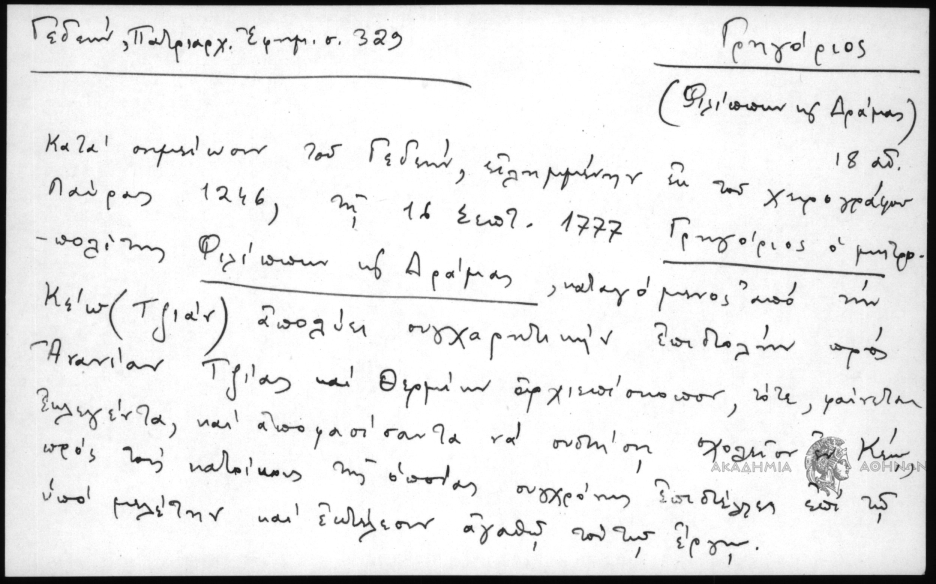 Γεδεών, Πατριαρχ. Ἐφημ. σ. 329
Γρηγόριος
(Φιλίππων κ Δράμας)
18 αἰ.
Κατά σημείωσιν τοῦ Γεδεών, εἰλημμένην ἐκ τοῦ χειρογράφου
Λαύρας 1246, τῇ 16 Σεπτ. 1777 Γρηγόριος ὁ μητρο-
-πολίτης Φιλίππων κ Δράμας, καταγόμενος ἀπό τήν
Κέω (Τζιάν) ἀπολύει συγχαρητικήν ἐπιστολήν πρός
Ἀνανίαν Τζίας καί Θερμίων ἀρχιεπίσκοπον, τότε, φαίνεται
ἐκλεγέντα, καί ἀποφασίσαντα νά συστήσῃ σχολεῖον ἐν Κέῳ,
πρός τούς κατοίκους τῆς ὁποίας συγχρόνως ἐπιστέλλει ἐπί τῷ
ὑπό μελέτην καί ἐκτέλεσιν ἀγαθῷ τούτῳ ἔργῳ.
ΑΚΑΔΗΜΙΑ ΑΘΗΝΩΝ